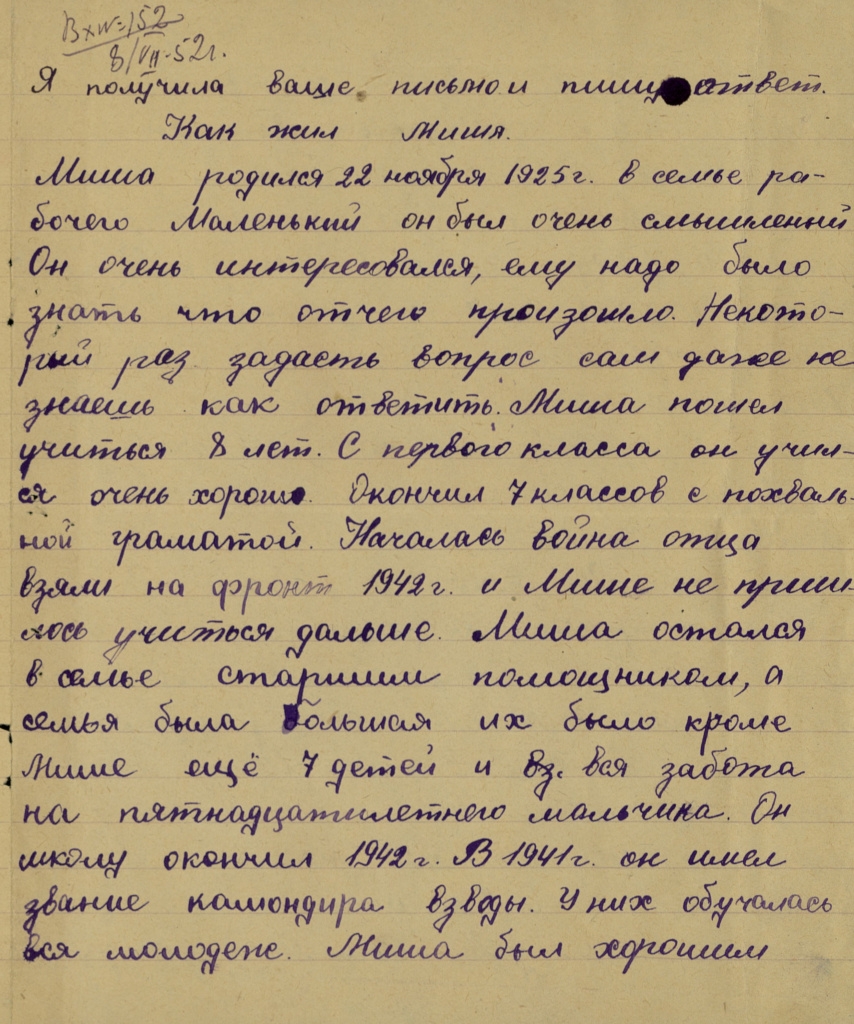 Вх№=152
8/VII-52г.
Я получила ваше письмо и пишу ответ.
Как жил Миша.
Миша родился 22 ноября 1925г. в семье ра-
бочего Маленький он был очень смышленый
Он очень интересовался, ему надо было
знать что отчего произошло. Некото-
рый раз задасть вопрос сам даже не
знаешь как ответить. Миша пошел
учиться 8 лет. С первого класса он учил-
ся очень хорошо. Окончил 7 классов с похваль-
ной граматой. Началась война отца
взяли на фронт 1942г. и Мише не приш-
лось учиться дальше. Миша остался
в семье старшим помощником, а
семья была большая их было кроме
Мише ещё 7 детей и вз. вся забота
на пятнадцатилетнего мальчика. Он
школу окончил 1942г. В 1941г. он имел
звание камондира взводы. У них обучалась
вся молодеж. Миша был хорошим